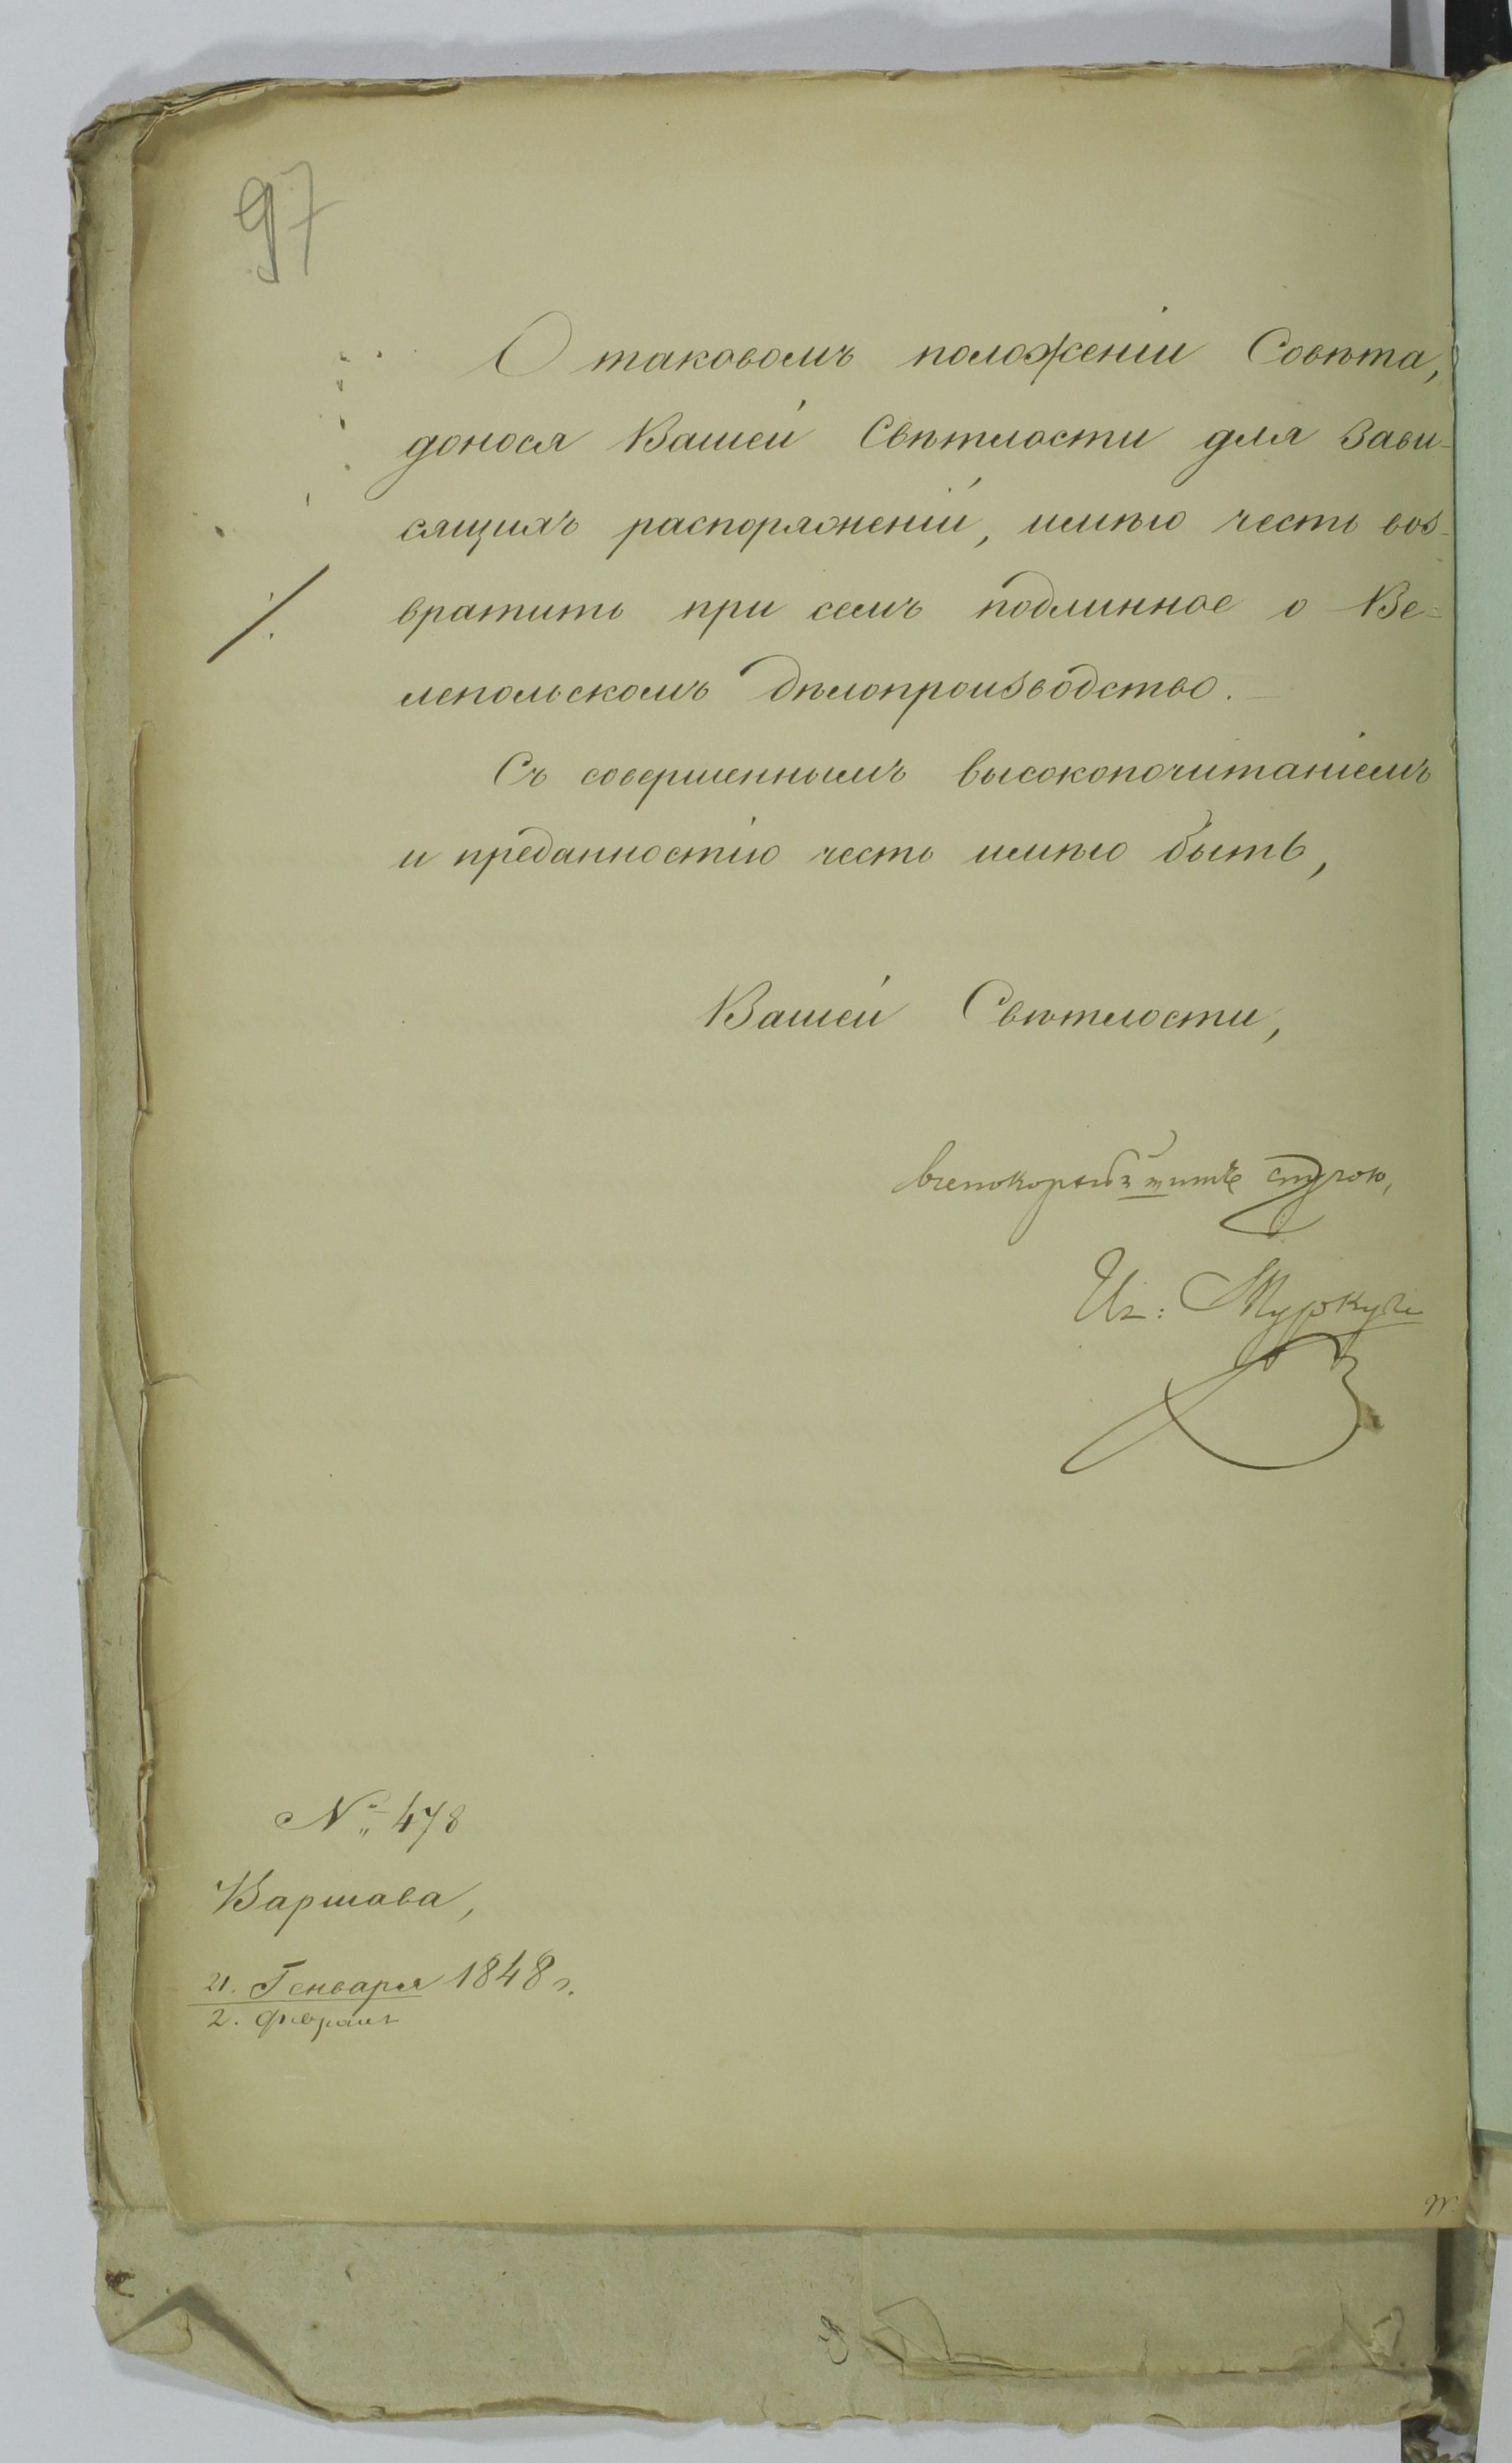 97
О таковомъ положеніи Совѣта,
донося Вашей Свѣтлости для зави-
сящихъ распоряженій, имѣю честь воз-
вратить при семъ подлинное о Ве-
лепольскомъ дѣлопроизводство.
Съ совершеннымъ высокопочитаніемъ
и преданностію честь имѣю быть,
Вашей Свѣтлости,
всепокорнѣйшимъ слугою,
Иг: Туркулъ
№ 478
Варшава,
21. Генваря 1848 г.
2. Февраля